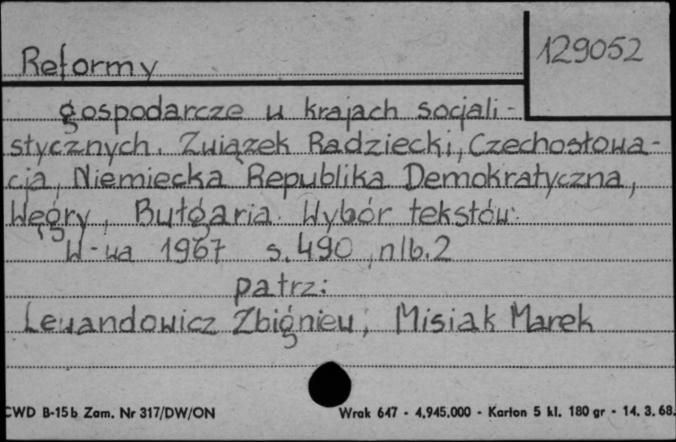 Reformy
129052
gospodarcze w krajach socjali-
stycznych. Związek Radziecki, Czechosłowa-
cja, Niemiecka Republika Demokratyczna,
Węgry, Bułgaria. Wybór tekstów.
W-wa 1967 s. 490, nlb. 2
patrz:
Lewandowicz Zbigniew, Misiak Marek
CWD B-15b Zam. Nr 317/DW/ON
Wrak 647 - 4.945.000 - Karton 5 kl. 180 gr - 14. 3. 68.